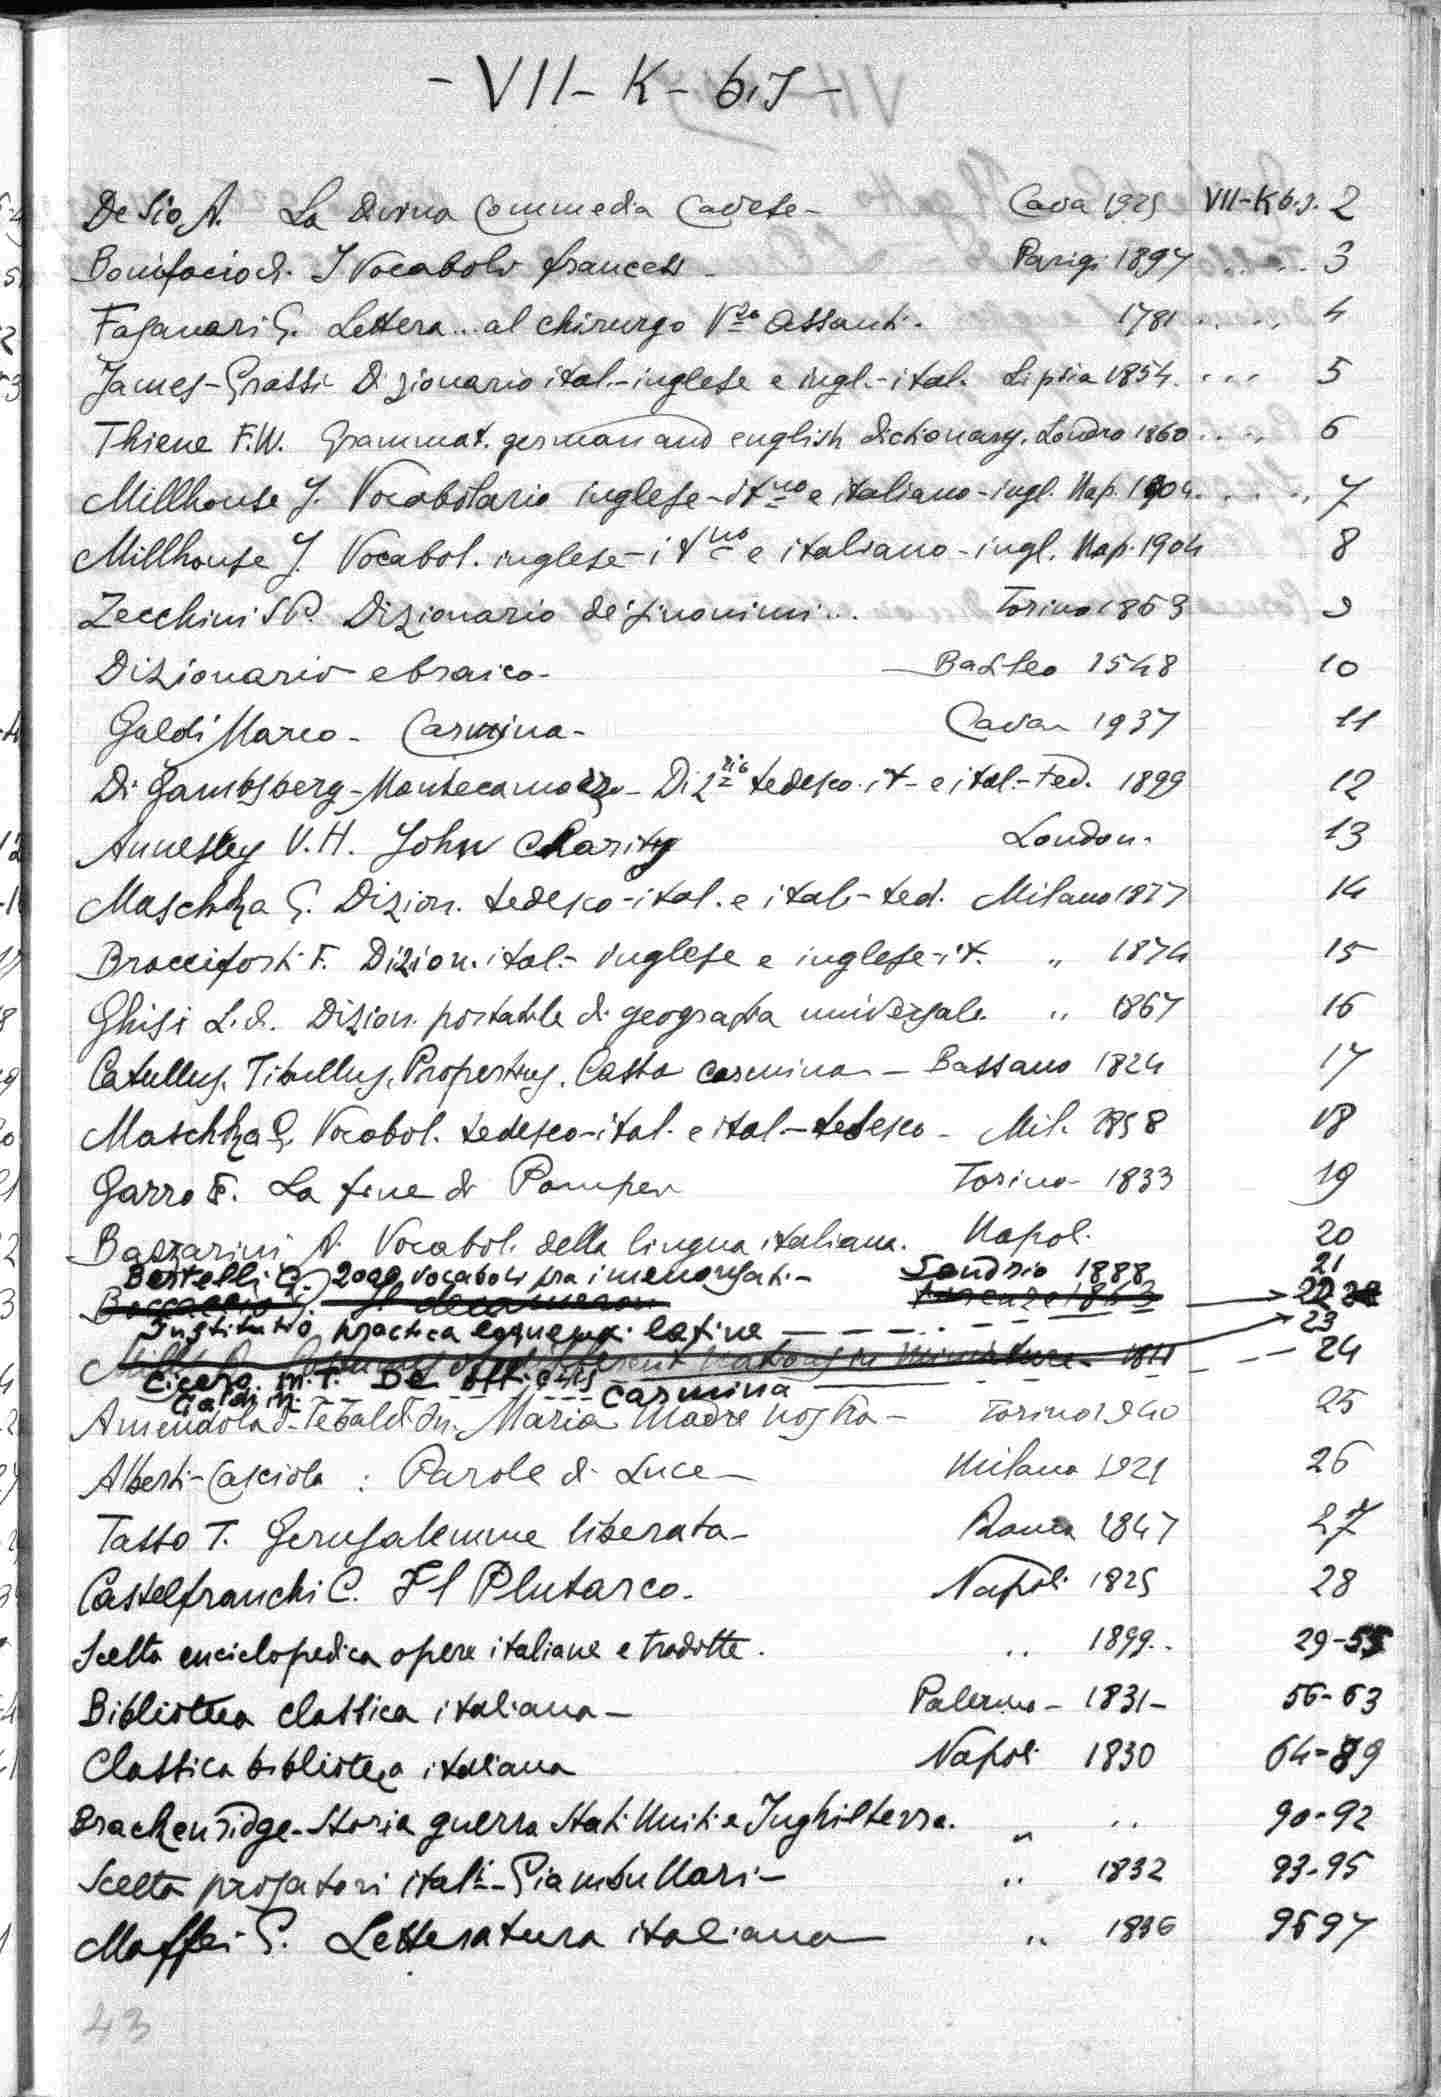 - VII - K - bis -
De Sio A. La Divina Commedia Cavese - Cava 1925 VII-K b.s. 2
Bonifacio d. I Vocaboli francesi - Parigi 1897 .. .. .. 3
Faganari G. Lettera .. al chirurgo Assanti. 1781 .. .. .. 4
James-Grassi Dizionario ital.-inglese e ingl.-ital. Lipsia 1854. ... 5
Thieme F.W. Grammat. german and english dictionary. Londra 1860 .. .. 6
Millhouse J. Vocabolario inglese-itno e italiano-ingl. Nap. 1904. .. .. 7
Millhouse J. Vocabol. inglese-itno e italiano-ingl. Nap. 1904 8
Zecchini S.P. Dizionario dei sinonimi ... Torino 1863 9
Dizionario ebraico - Basileo 1548 10
Galdi Marco - Carmina - Cava 1937 11
Di Dizrio tedesco-it- e ital.-ted. 1899 12
Annesley V.H. John Charity London. 13
Maschka G. Dizion. tedesco-ital. e ital-ted. Milano 1877 14
Bracciforti F. Dizion. ital.- inglese e inglese-it. " 1874 15
Ghisi L.d. Dizion. portatile di geografia universale. " 1867 16
Catullus, Tibullus, Propertius. Casta carmina - Bassano 1824 17
Maschka G. Vocabol. tedesco-ital. e ital-tedesco - Mil. 1858 18
Garro F. La fine di Pompei Torino - 1833 19
Bazzarini A. Vocabol. della lingua italiana. Napol. 20
Bertelli C. 2000 vocaboli tra i menousati - Sondrio 1888 21
Boccaccio G. Il decameron Firenze 1863 22
Institutio practica latine 23
different nations in miniature - 1811 24
Cicero M.T. De officiis
Galdi M. Carmina
Amendola d- Tebaldi Maria Madre nostra - Torino 1940 25
Alberti-Casciola : Parole di Luce - Milano 1921 26
Tasso T. Gerusalemme liberata - Roma 1847 27
Castelfranchi C. Il Plutarco. Napoli 1825 28
Scelta enciclopedica opere italiane e tradotte. " 1899.. 29-55
Biblioteca classica italiana - Palermo - 1831 - 56-63
Classica biblioteca italiana Napoli 1830 64-89
Brackenridge - Storia guerra Stati Uniti e Inghilterra. " " 90-92
Scelta prosatori itali - Giambullari - " 1832 93-95
Maffei G. Letteratura italiana " 1836 96 97
43